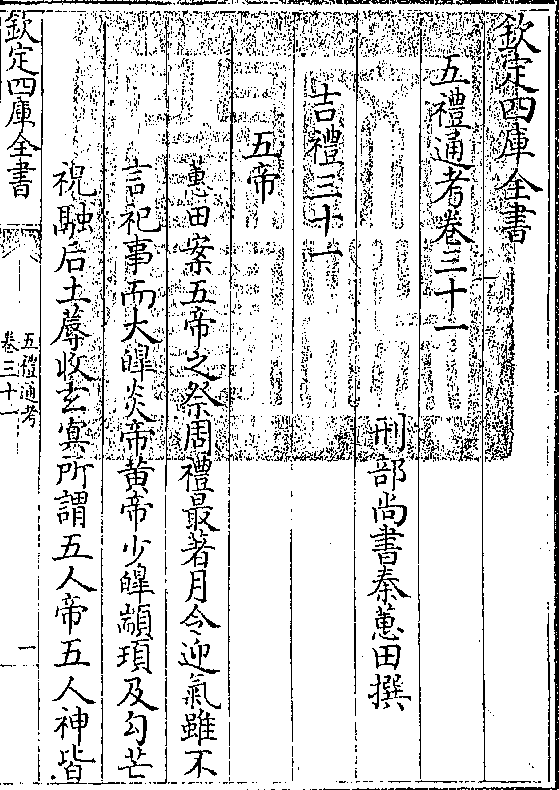 欽定四庫全書
五禮通考卷三十一
刑部尚書秦蕙田撰
吉禮三十一
五帝
蕙田案五帝之祭周禮最著月令迎氣雖不
言祀事而大皥炎帝黃帝少皥顓頊及勾芒
祝融后土蓐收玄冥所謂五人帝五人神皆
欽定四庫全書
五禮通考
卷三十一
一